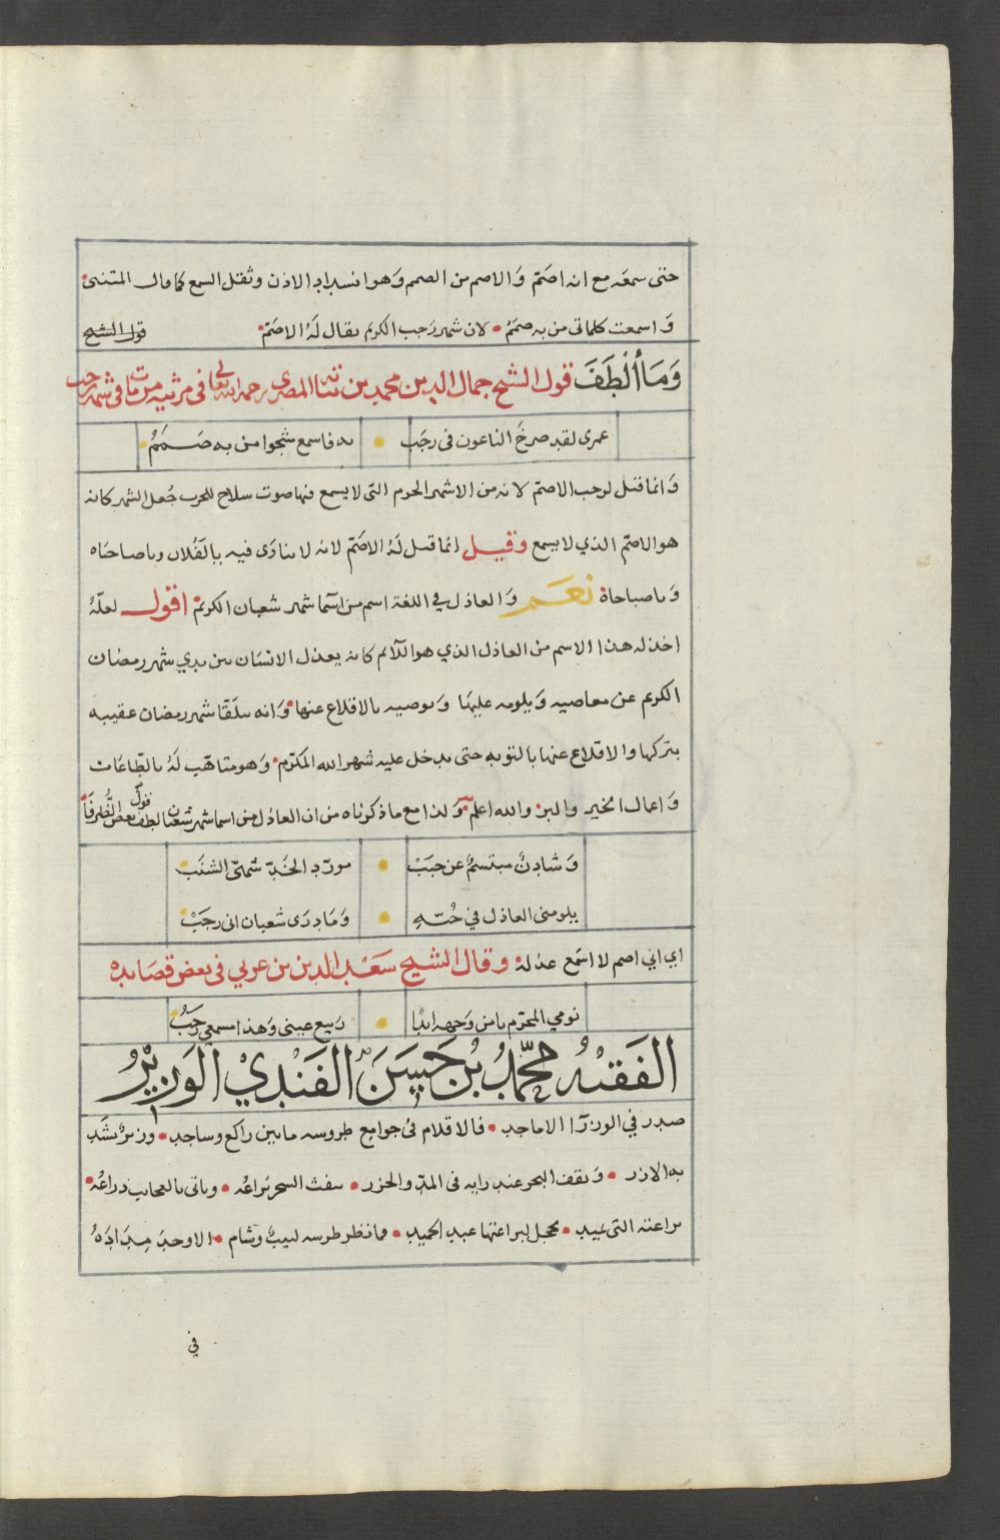 حتى سمعه مع انه اصم والاصم من الصمم وهو انسداد الاذن وثقل السمع كما قال المتنبى
واسمعت كلماتى من به صمم لان شهر رجب الكريم يقال له الاصم قول الشيخ
وما ألطف قول الشيخ جمال الدين محمد بن نباتة المصرى رحمه الله تعالى فى مرثيه من مات فى شهر رجب
عمرى لقد صرخ الناعون فى رجب به فاسمع شجوا من به صمم
وانما قيل لرجب الاصم لانه من الاشهر الحرم التى لا يسمع فيها صوت سلاح للحرب جعل الشهر كانه
هو الاصم الذي لا يسمع وقيل انما قيل له الاصم لانه لا ينادى فيه يا لفلان ويا صاحباه
ويا صباحاه نعم والعاذل في اللغة اسم من اسما شهر شعبان الكريم اقول لعله
اخذ له هذا الاسم من العاذل الذي هو اللآيم كانه يعذل الانسان بين يدي شهر رمضان
الكريم عن معاصيه ويلومه عليها ويوصيه بالاقلاع عنها وانه سلقا شهر رمضان عقيبه
بتركها والاقلاع عنها بالتوبه حتى يدخل عليه شهر الله المكرم وهو متاهب له بالطاعات
واعمال الخير والبر والله اعلم ولذا مع ما ذكرناه من ان العاذل من اسما شهر شعبان لطف قول بعض الظرفا
وشادن مبتسم عن حبب مورد الخد شهى الشنب
يلومنى العاذل في حبه وما درى شعبان انى رجب
اي اني اصم لا اسمع عذله وقال الشيخ سعد الدين بن عربي فى بعض قصايده
نومي المحرم يا من وجهه ابدا ربيع عينى وهذا مسمعي رجب
الفقيه محمد بن حسن الفندي الوزير
صدر في الوزرا الاماجد فالاقلام فى جوامع طروسه ما بين راكع وساجد وزير يشد
به الازر ويقف البحر عند رايه فى المد والجزر ينفث السحر يراعه وياتى بالعجايب ذراعه
براعته التى عبيد يخجل لبراعتها عبد الحميد وما نظر طرسه لبيب وشام الاوجد مداده
في